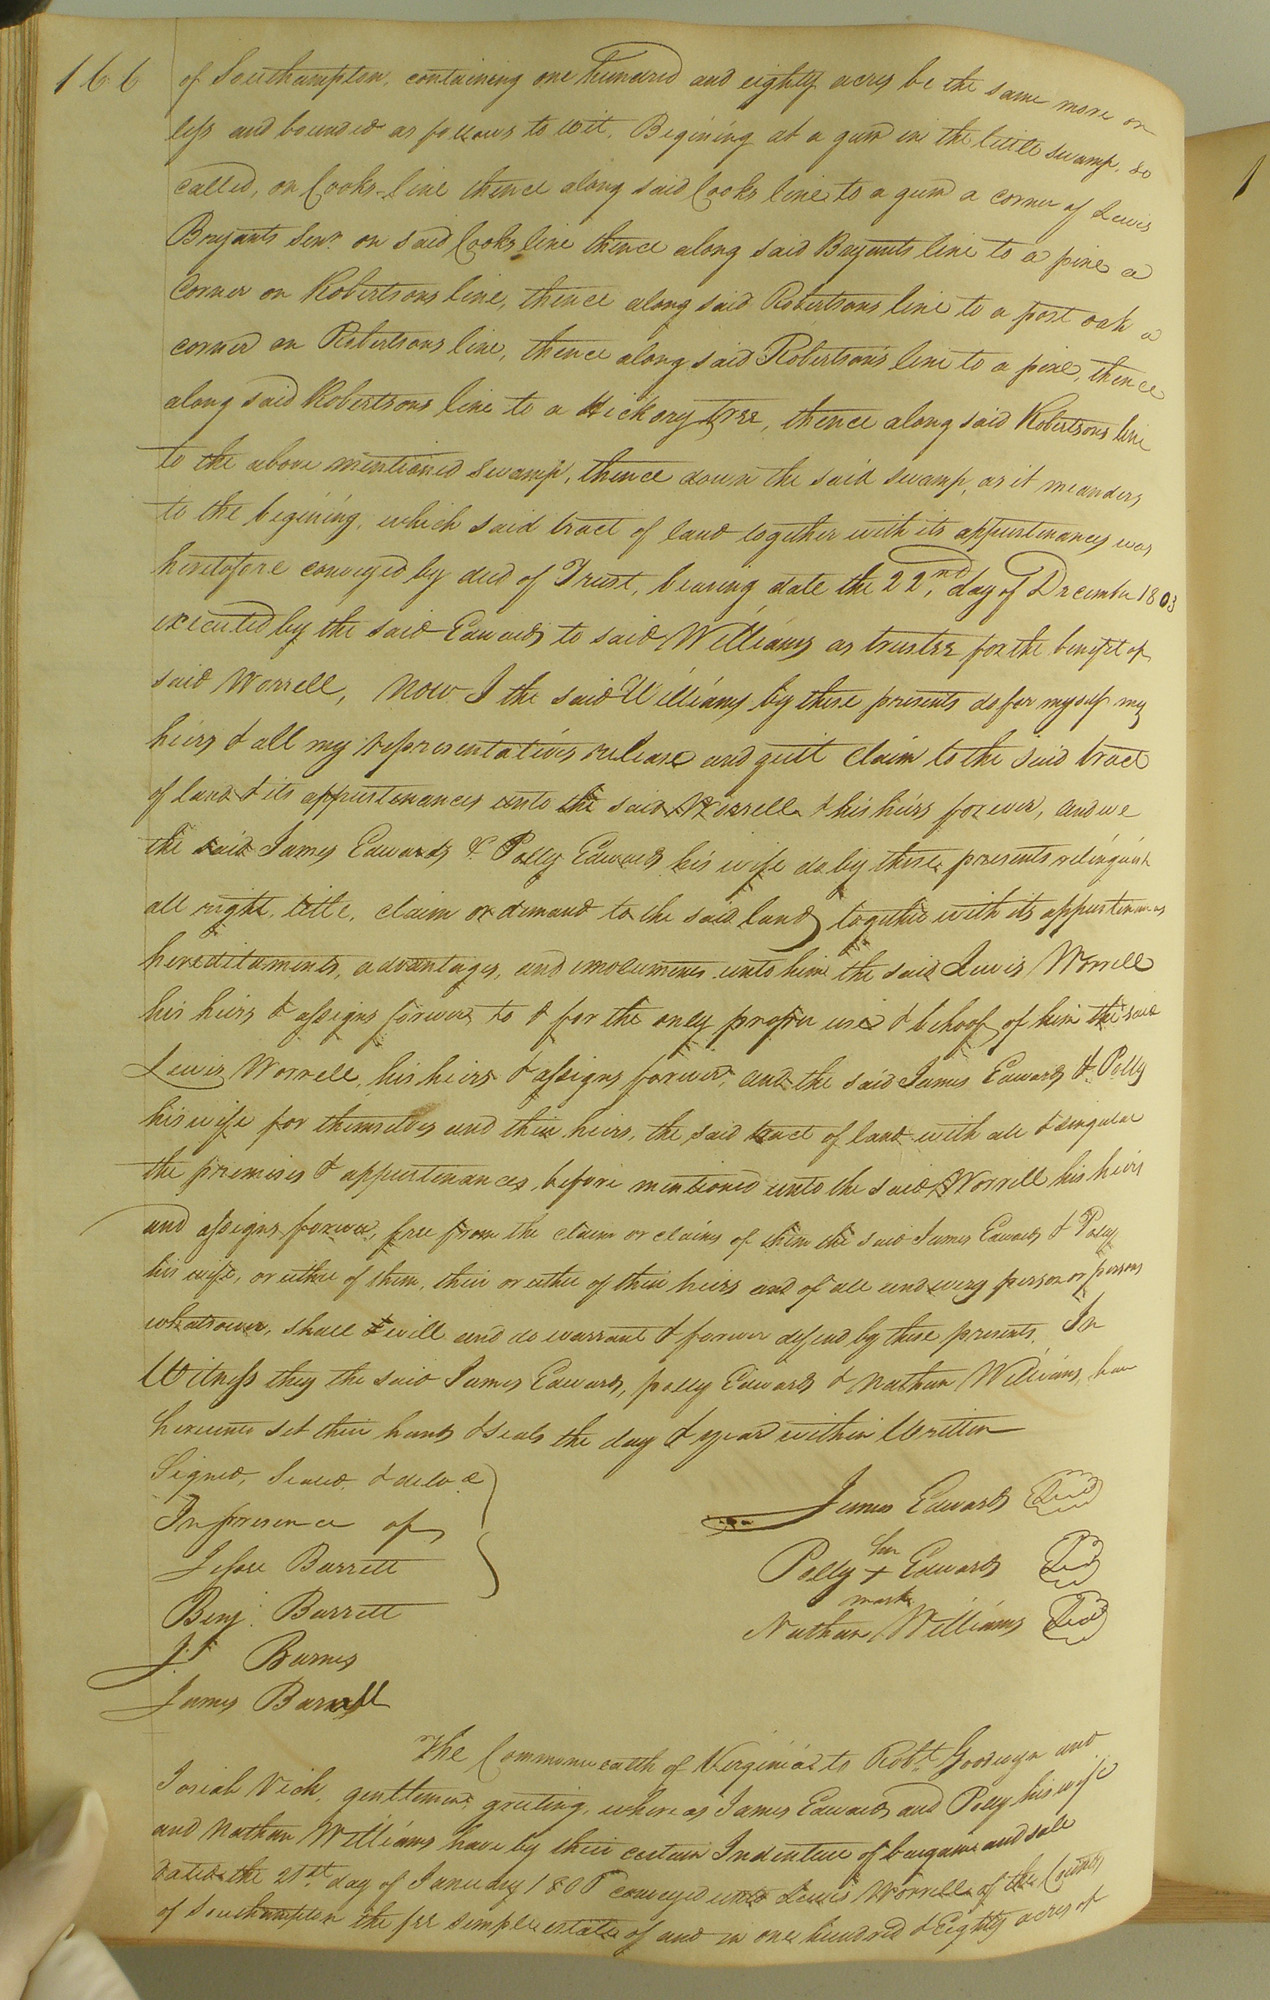 166
of Southampton, containing one hundred and eighty acres be the same more or
less and bounded as follows to wit, Begining at a gum in the little swamp, so
called, on Cooks line thence along said Cooks line to a gum a corner of Lewis
Bryants Senr. on said Cooks line thence along said Bryants line to a pine a
Corner on Robertsons line, thence along said Robertsons line to a post oak a
corner on Robertsons line, thence along said Robertsons line to a pine, thence
along said Robertsons line to a Hickory tree, thence along said Robertsons line
to the above mentioned swamp, thence down the said swamp, as it meanders
to the begining, which said tract of land together with its appurtenances was
heretofore conveyed by deed of Trust, bearing date the 22nd, day of December 1803
executed by the said Edwards to said Williams as trustee for the benefit of
said Worrell, Now I the said Williams by these presents do for myself my
heirs & all my representatives release and quit claim to the said tract
of land & its appurtenances unto the said Worrell & his heirs forever, and we
the said James Edwards & Polly Edwards his wife do by these presents relinquish
all right, title, claim or demand to the said land together with its appurtenances
hereditaments, advantages, and emoluments unto him the said Lewis Worrell
his heirs & assigns forever to & for the only proper use & behoof of him the said
Lewis Worrell, his heirs & assigns forever, and the said James Edwards & Polly
his wife for themselves and their heirs, the said tract of land with all & singular
the premises & appurtenances before mentioned unto the said Worrell his heirs
and assigns forever, free from the claim or claims of them the said James Edwards & Polly
his wife, or either of them, their or either of their heirs and of all and every person or persons
whatsoever, shall & will and do warrant & forever defend by these presents. In
Witness they the said James Edwards, polly Edwards & Nathan Williams, have
hereunto set their hands & seals the day & year within Written
Signed, Sealed, & delvd
In presence of
James Edwards Seal
Jesse Barrett
her
Polly + Edwards Seal
mark
Benj. Barrett
Nathan Williams Seal
J. Barnes
James Barnall
The Commonwealth of Virginia to Robt. Goodwyn and
Josiah Vick, gentlemen greeting, whereas James Edwards and Polly his wife
and Nathan Williams have by their certain Indenture of bargain and sale
dated the 21st day of January 1808 conveyed unto Lewis Worrell of the County
of Southampton the fee simple estate of and in one hundred & Eighty acres of